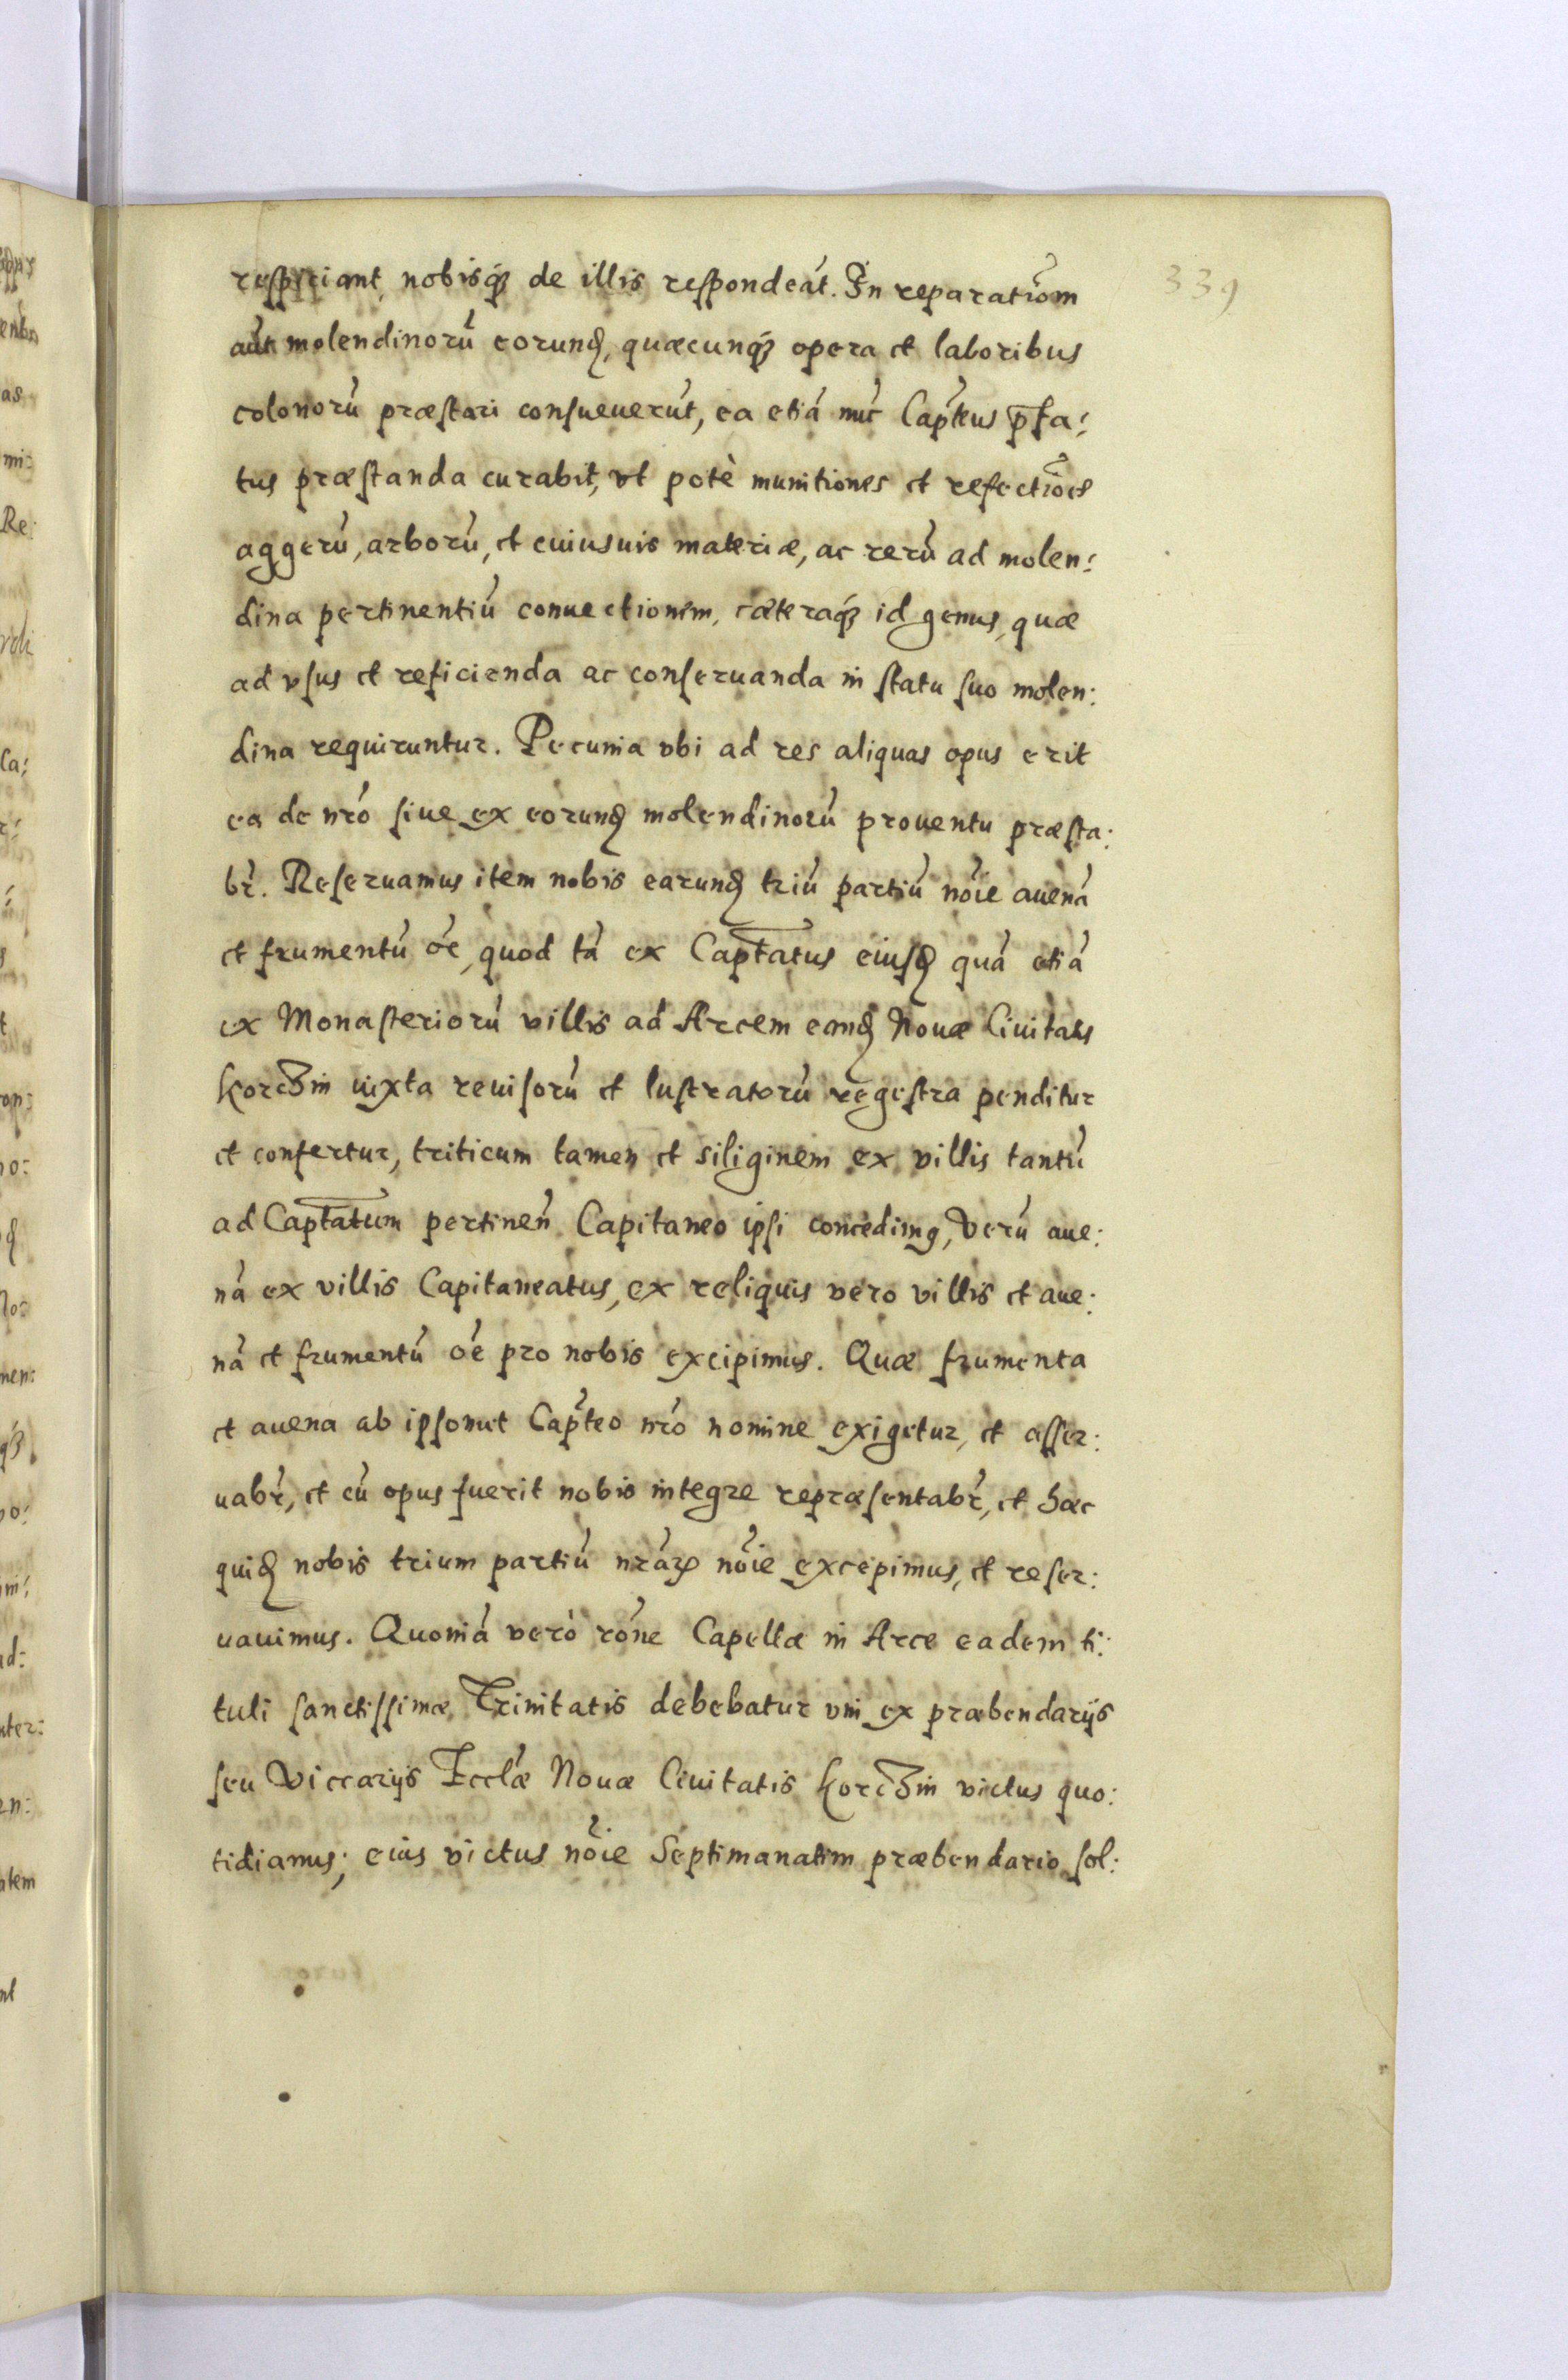 339
respiciant, nobisq́ꝫ de illis respondeát. In reparatiom̃
aũt molendinorũ eorunꝺ, quæcunq́ꝫ opera et laboribus
colonorũ præstari consueuerũt, ea etiá nũc Capt̃eus p̄fa:
tus præstanda curabit, vt potè munitiones et refectiões
aggerũ, arborũ, et cuiusuis materiæ, ac rerũ ad molen:
dina pertinentiũ conuectionem, cæteraq́ꝫ id genus, quæ
ad vsus et reficienda ac conseruanda in statu suo molen:
dina requiruntur. Pecunia vbi ad res aliquas opus erit
ea de nr̃o siue ex eorunꝺ molendinorũ prouentu præsta:
br̃. Reseruamus item nobis earunꝺ triũ partiũ nõie auená
et frumentũ oẽ, quod tá ex Capt̃atus eiusꝺ quá etiá
ex Monasteriorũ villis ad Arcem eanꝺ Nouæ Ciuitatis
Korcz̃in iuxta reuisorũ et lustratorũ regestra penditur
et confertur, triticum tamen et siliginem ex villis tantũ
ad Capt̃atum pertineñ Capitaneo ipsi concedimꝰ, Verũ aue:
ná ex villis Capitaneatus, ex reliquis vero villis et aue:
ná et frumentũ oẽ pro nobis excipimus. Quæ frumenta
et auena ab ipsomet Capt̃eo nr̃o nomine exigetur, et asser:
uabr̃, et cũ opus fuerit nobis integre repræsentabr̃, et hæc
quiꝺ nobis trium partiũ nr̃aꝝ nõie excepimus, et reser:
uauimus. Quoniá verò rõne Capellæ in Arce eadem ti:
tuli sanctissimæ Trinitatis debebatur vni ex præbendarijs
seu Viccarijs Eccl̃æ Nouæ Ciuitatis Korcz̃in victus quo:
tidianus; eius victus nõie Septimanatim præbendario sol: